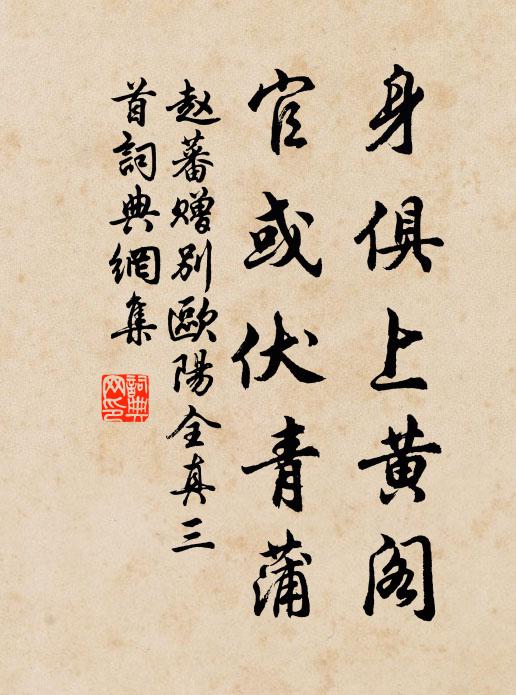 身俱上黄阁
官或伏青蒲
赵蕃赠别欧阳全真三
首词典網集
詞典
网印